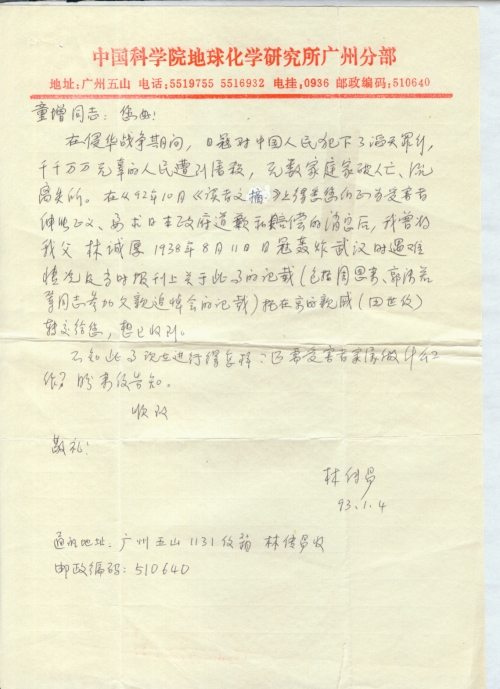 中国科学院地球化学研究所广州分部
地址:广州五山 电话:5519755 5516932 电挂:0936 邮政编码:510640
童增同志：您好！
在侵华战争期间，日寇对中国人民犯下了滔天罪行，
千千万万无辜的人民遭到屠杀，无数家庭家破人亡、流
离失所。在从92年10月《读者文摘》上得悉您们正为受害者
伸张正义、要求日本政府道歉和赔偿的消息后，我曾将
我父林诚厚1938年8月11日日寇轰炸武汉时遇难
情况及当时报刊上关于此事的记载（包括周恩来、郭沫若
等同志参加公祭追悼会的记载）托在京的亲戚（田世俊）
转交给您，想已收到。
不知此事现在进行得怎样？还需受害者家属做什么工
作？盼来信告知。
顺致
敬礼！
林传昌
93.1.4
通讯地址：广州五山1131信箱 林传昌收
邮政编码：510640